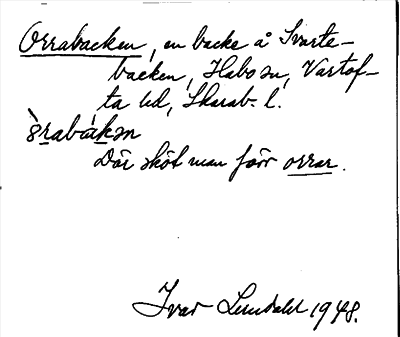 Orrabacken, en backe å Svarte-
backen, Habo sn, Vartof-
ta hd, Skarab. l.
òrabákən
Där sköt man förr orrar.
Ivar Lundahl 1948.